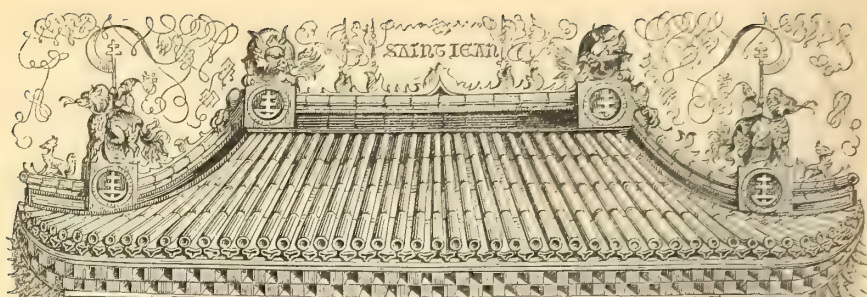 SAINT IEAN